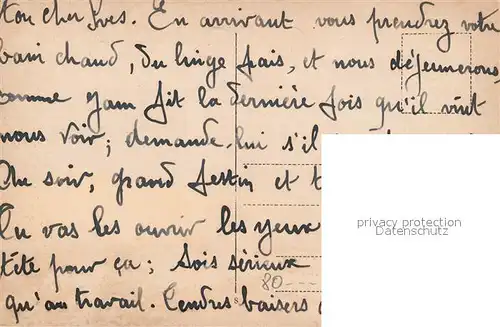 Mon cher Yves. En arrivant vous prendrez votre
bain chaud, du linge frais, et nous déjeunerons,
comme Yam fit la dernière fois qu'il vint
nous voir; demande-lui s'il
Au soir, grand festin et
Tu vas les ouvrir les yeux
tête pour ça; Sois sérieux
qu'au travail. Tendres baisers
80
privacy protection
Datenschutz